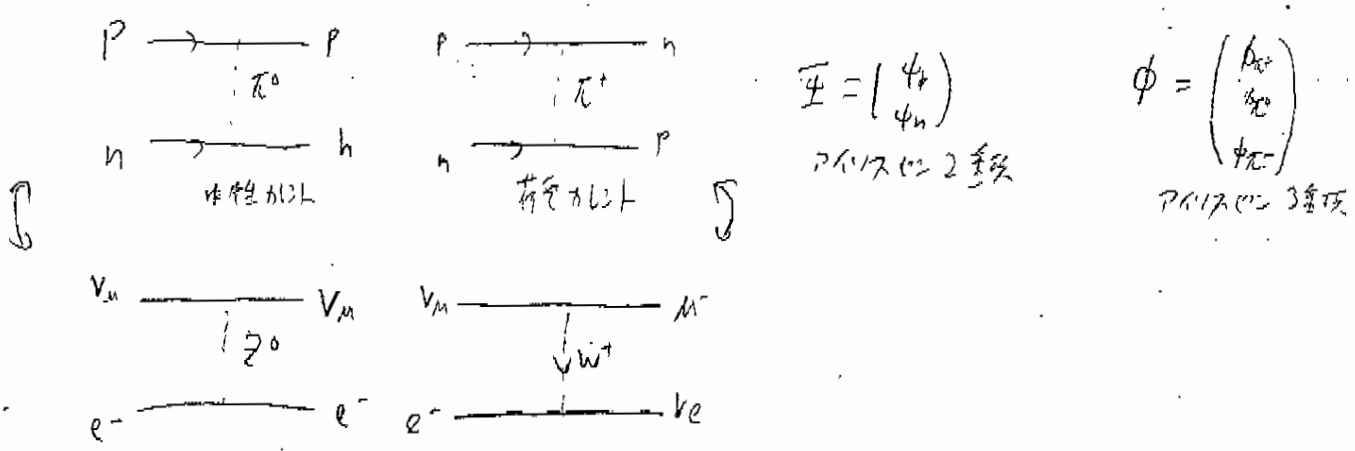 p p
π⁰
n n
中性カレント
p n
π⁺
n p
荷電カレント
Ψ = (ψp ψn)
アイソスピン 2重項
ϕ = (ϕπ⁺ ϕπ⁰ ϕπ⁻)
アイソスピン 3重項
νμ νμ
Z⁰
e⁻ e⁻
νμ μ⁻
W⁺
e⁻ νe